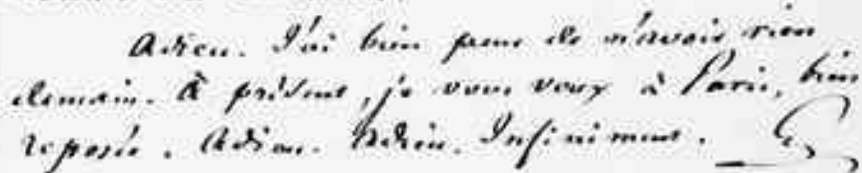 Adieu. J'ai bien peur de n'avoir rien
demain. À présent, je vous veux à Paris, bien
reposée. Adieu. Adieu. Infiniment. G